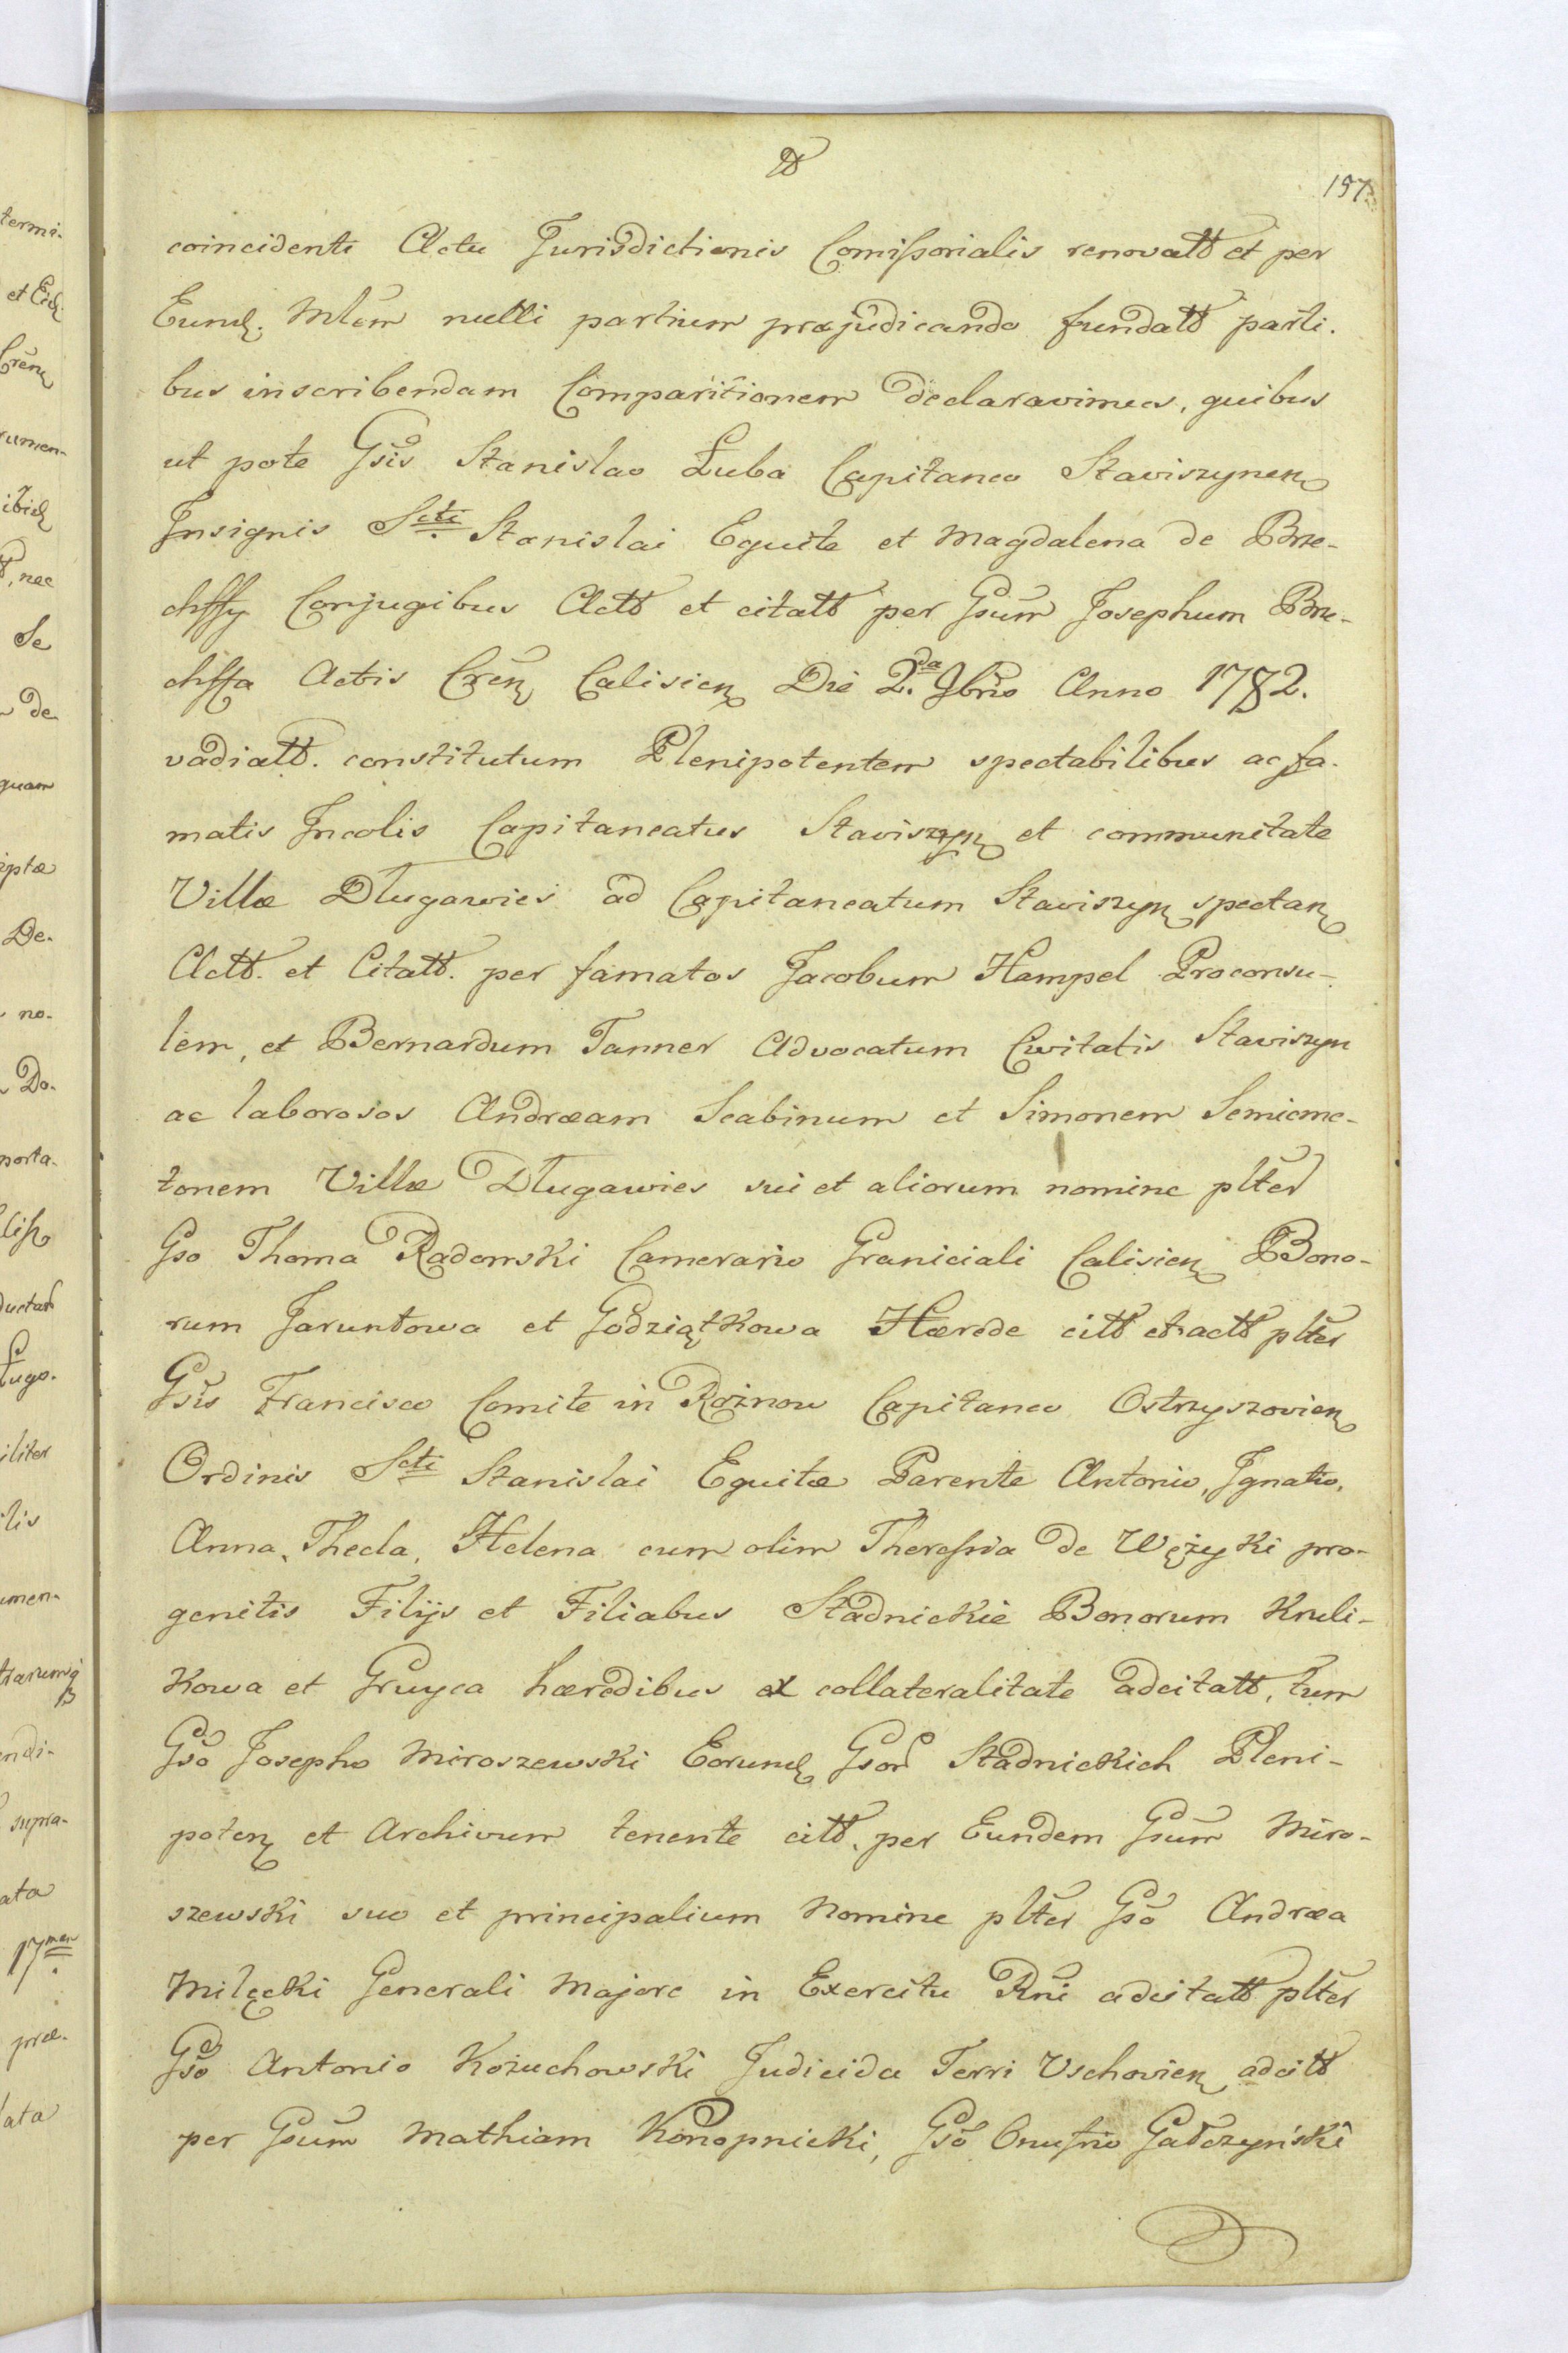 197.
coincidenti Actu Jurisdictionis Comissorialis renovatt et per
Eund. Mltem nulli partium præjudicando fundatt parti.
bus inscribendam Comparitionem declaravimus, quibus
ut pote Gsis Stanislao Łuba Capitaneo Staviszynen
Insignis Scti Stanislai Equite et Magdalena de Bre-
chffy Conjugibus Actt et citatt per Gsum Josephum Bre-
chffa Actis Cren Calisien Die 2.da 9bris Anno 1782.
vadiatt. constitutum Plenipotentem spectabilibus ac fa-
matis Incolis Capitaneatus Staviszyn et communitate
Villæ Długawies ad Capitaneatum Staviszyn spectan
Actt. et Citatt. per famatos Jacobum Hampel Proconsu-
lem, et Bernardum Tanner Advocatum Civitatis Staviszyn
ac laborosos Andræam Scabinum et Simonem Semicme-
tonem Villæ Długawies sui et aliorum nomine plter
Gso Thoma Radomski Camerario Graniciali Calisien Bono-
rum Jaruntowa et Godziątkowa Hærede citt et actt plter
Gsis Francisco Comite in Rożnow Capitaneo Ostrzyszovien
Ordinis Scti Stanislai Equitæ Parente Antonio, Ignatio,
Anna, Thecla, Helena cum olim Theressia de Wężyki pro-
genitis Filijs et Filiabus Stadnickie Bonorum Kruli-
kowa et Gruyca hæredibus ex collateralitate adcitatt, tum
Gso Josepho Miroszewski Eorund Gsor Stadnickich Pleni-
poten et Archivum tenente citt. per Eundem Gsum Miro-
szewski suo et principalium Nomine plter Gso Andræa
Milęcki Generali Majore in Exercitu Rni adcitatt plter
Gso Antonio Kożuchowski Judicida Terri Vschovien adcitt
per Gsum Mathiam Konopnicki, Gso Onufrio Gałczyński